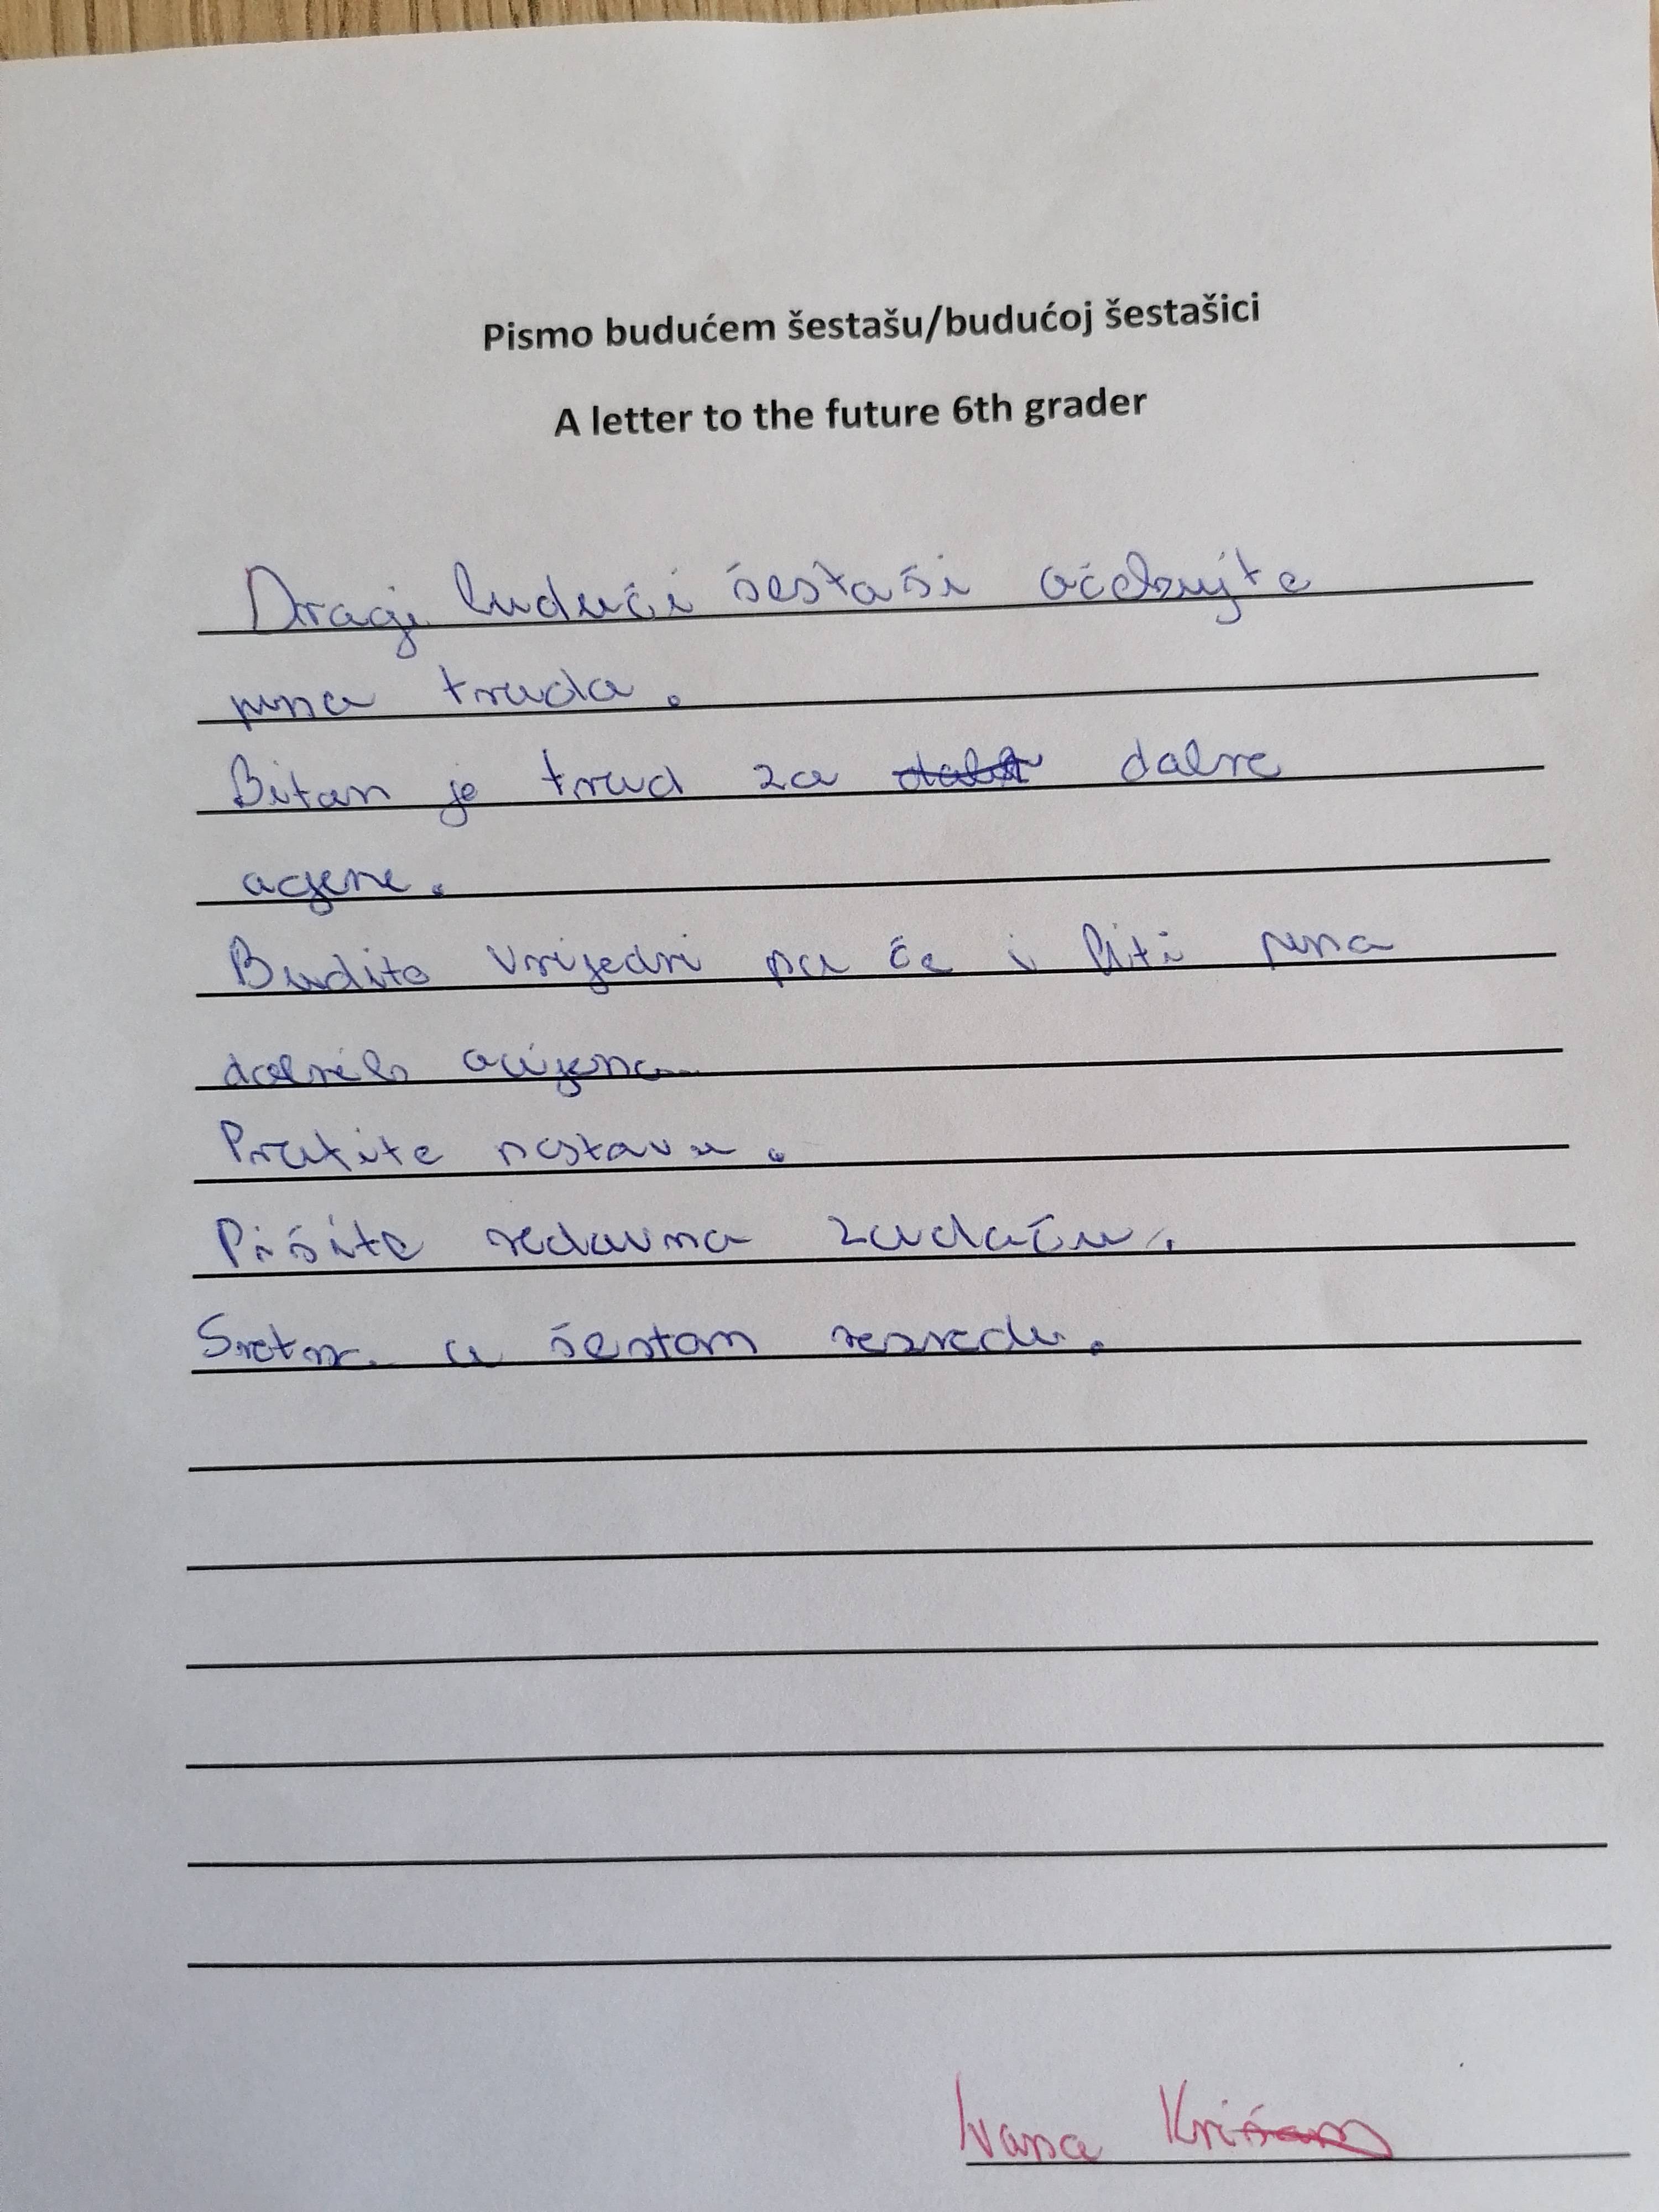 Pismo budućem šestašu/budućoj šestašici
A letter to the future 6th grader
Dragi budući šestaši očekujte
puno truda.
Bitan je trud za dobre
ocjene.
Budite vrijedni pa će i biti puno
dobrih ocijena.
Pratite nastavu.
Pišite redovno zadaću.
Sretno u šestom razredu.
Ivana